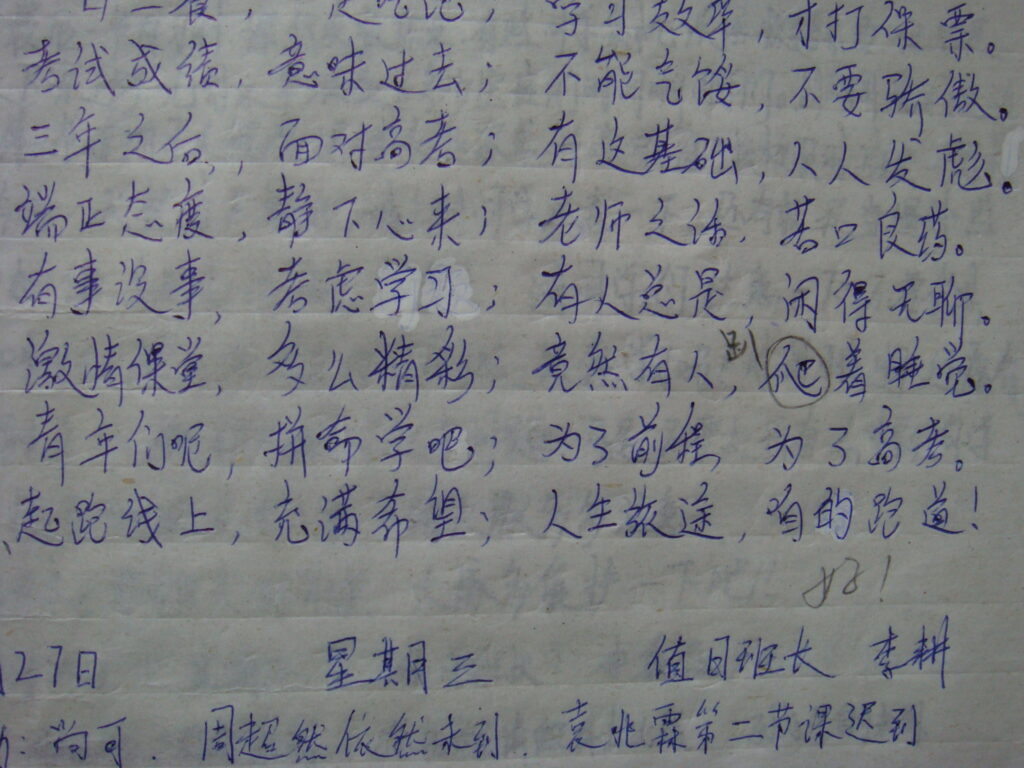 日三餐， 一定吃饱；学习效率，才打保票。
考试成绩，意味过去；不能气馁，不要骄傲。
三年之后，面对高考；有这基础，人人发彪。
端正态度，静下心来；老师之话，苦口良药。
有事没事，考虑学习；有人总是，闲得无聊。
激情课堂，多么精彩；竟然有人，爬着睡觉。
趴
青年们呢，拼命学吧；为了前程，为了高考。
起跑线上，充满希望；人生旅途，有的跑道！
好！
27日 星期三 值日班长 李耕
：尚可. 周超然依然未到. 袁兆霖第二节课迟到